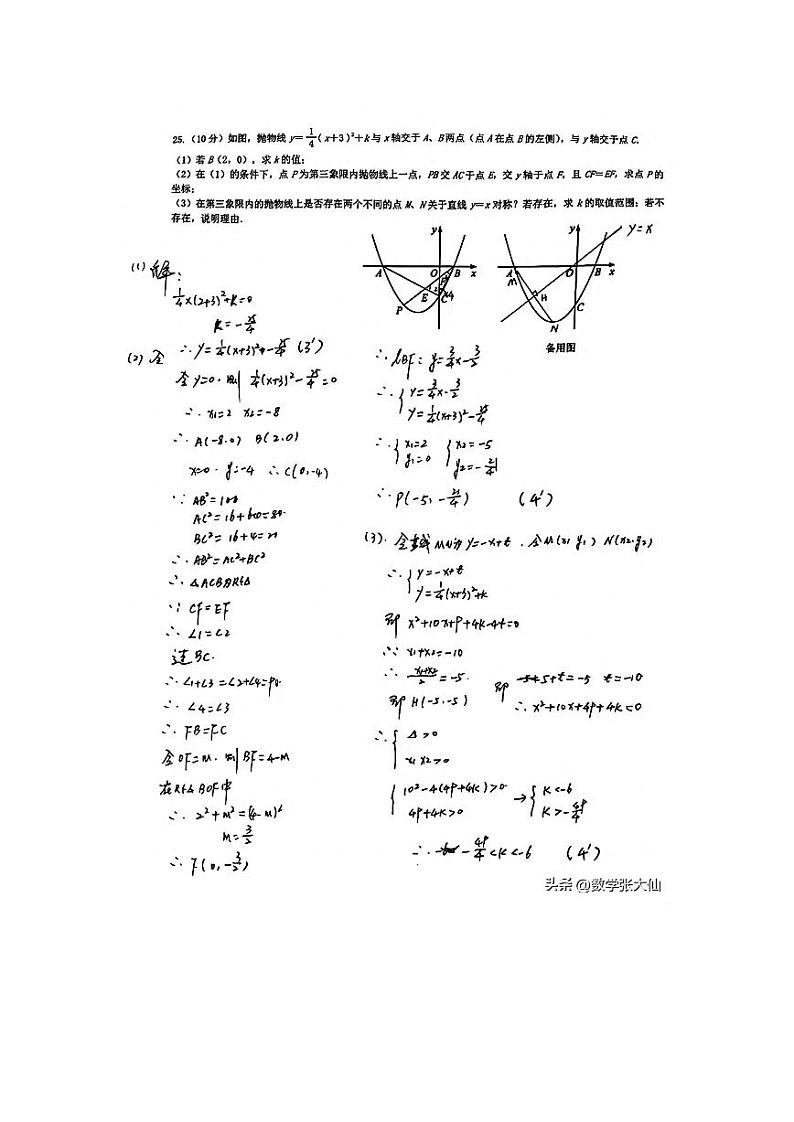 25.（10分）如图，抛物线 y=1/4(x+3)²+k 与 x 轴交于 A、B 两点（点 A 在点 B 的左侧），与 y 轴交于点 C.
（1）若 B（2，0），求 k 的值；
（2）在（1）的条件下，点 P 为第三象限内抛物线上一点，PB 交 AC 于点 E，交 y 轴于点 F，且 CF=EF，求点 P 的
坐标；
（3）在第三象限内的抛物线上是否存在两个不同的点 M、N 关于直线 y=x 对称？若存在，求 k 的取值范围；若不
存在，说明理由.
y
A
O
B
x
F
E
C
P
y
y=x
A
O
B
x
M
H
C
N
备用图
(1) 解：
1/4×(2+3)²+k=0
k=-25/4
∴y=1/4(x+3)²-25/4 (3')
(2) 令
令y=0. 则 1/4(x+3)²-25/4=0
∴x1=2 x2=-8
∴A(-8.0) B(2.0)
x=0. y=-4 ∴C(0,-4)
∵AB²=100
AC²=16+64=80
BC²=16+4=20
∴AB²=AC²+BC²
∴△ACB为Rt△
∵CF=EF
∴∠1=∠2
连BC.
∴∠1+∠3=∠2+∠4=90
∴∠4=∠3
∴FB=FC
令OF=m. 则BF=4-m
在Rt△BOF中
∴2²+m²=(4-m)²
m=3/2
∴F(0,-3/2)
∴lBF: y=3/4x-3/2
∴{y=3/4x-3/2
y=1/4(x+3)²-25/4
∴{x1=2 {x2=-5
y1=0 y2=-21/4
∴P(-5,-21/4) (4')
(3). 令直线MN为y=-x+t. 令M(x1 y1) N(x2.y2)
∴{y=-x+t
y=1/4(x+3)²+k
即 x²+10x+9+4k-4t=0
∴x1+x2=-10
∴(x1+x2)/2=-5. 即 5+t=-5 t=-10
即 H(-5.-5) ∴x²+10x+49+4k=0
∴{△>0
x1x2>0
{10²-4(49+4k)>0 →{k<-6
49+4k>0 k>-49/4
∴-49/4<k<-6 (4')
头条 @数学张大仙